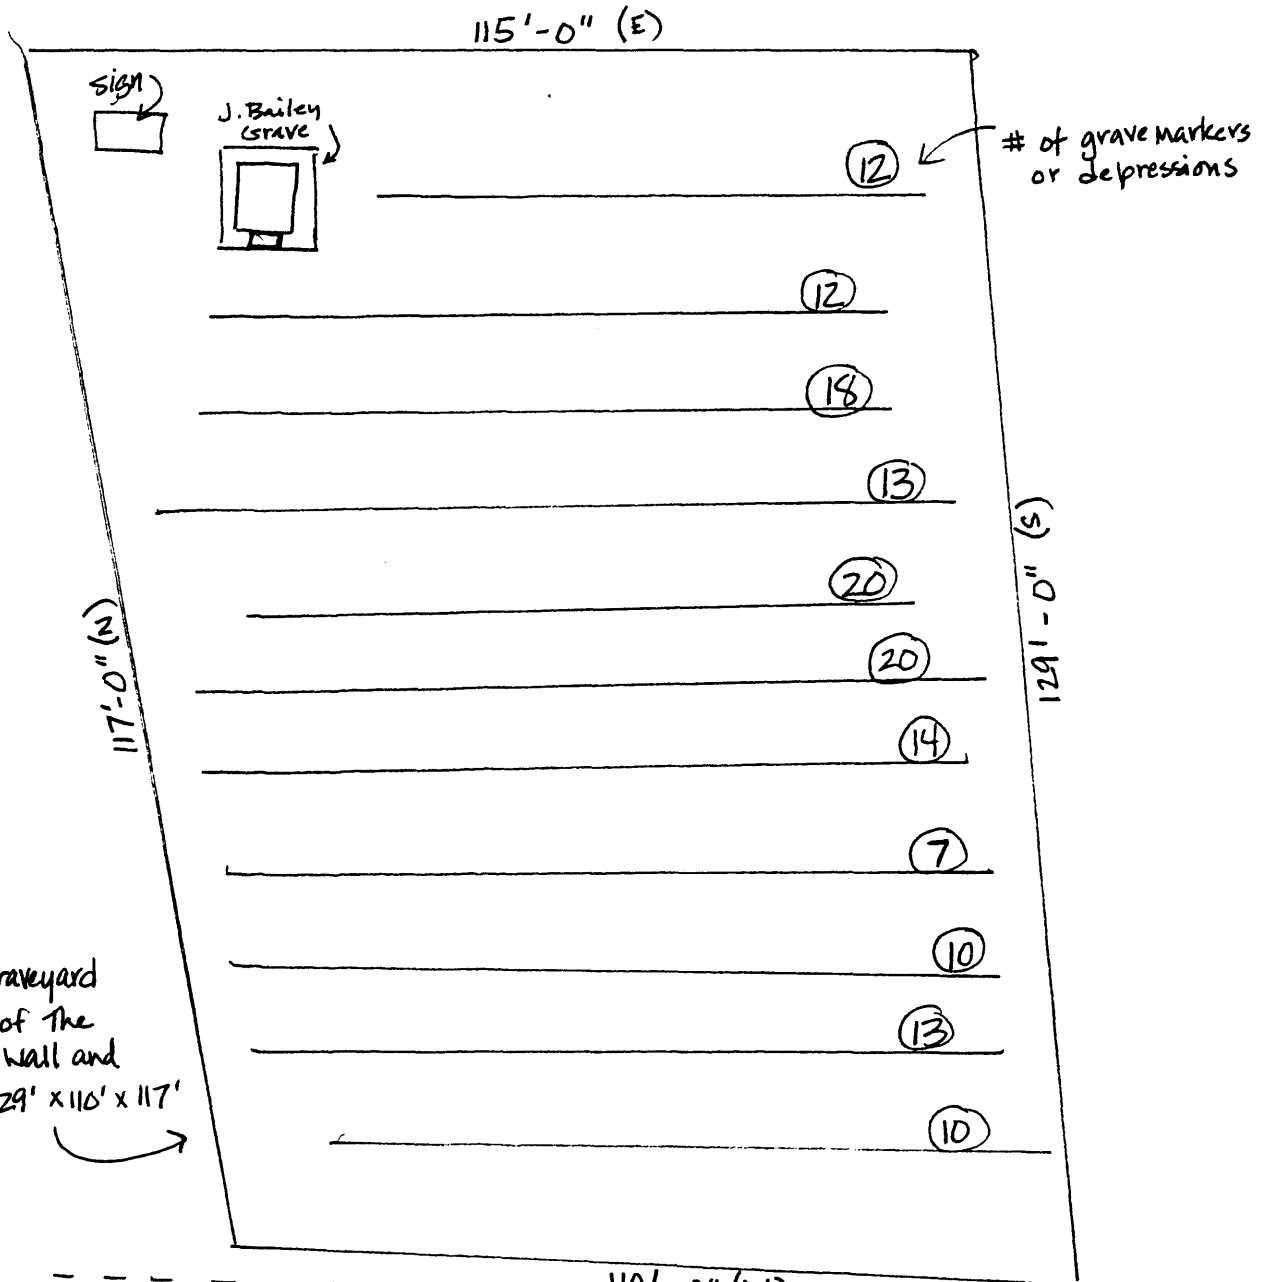 115'-0" (E)
sign
J. Bailey
Grave
# of grave markers
or depressions
12
12
18
13
20
20
14
7
10
13
10
129'-0" (S)
117'-0" (N)
of the
wall and
x 110' x 117'